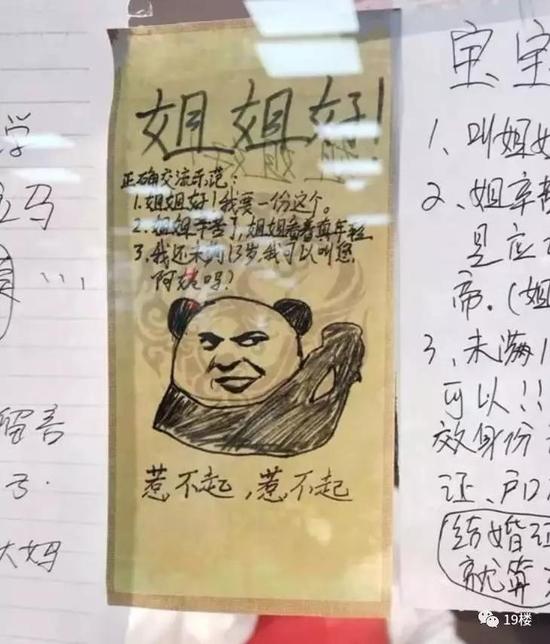 学
马
留言
大妈
姐姐好!
正确交流示范:
1.姐姐好!我要一份这个。
2.姐姐辛苦了,姐姐看着真年轻
3.我还未满13岁,我可以叫您
阿姨吗?
惹不起,惹不起
宝宝
1、叫姐姐
2、姐辛苦
是应
帝.(姐
3、未满1
可以!!
效身份
证、户口
结婚证
就算
19楼